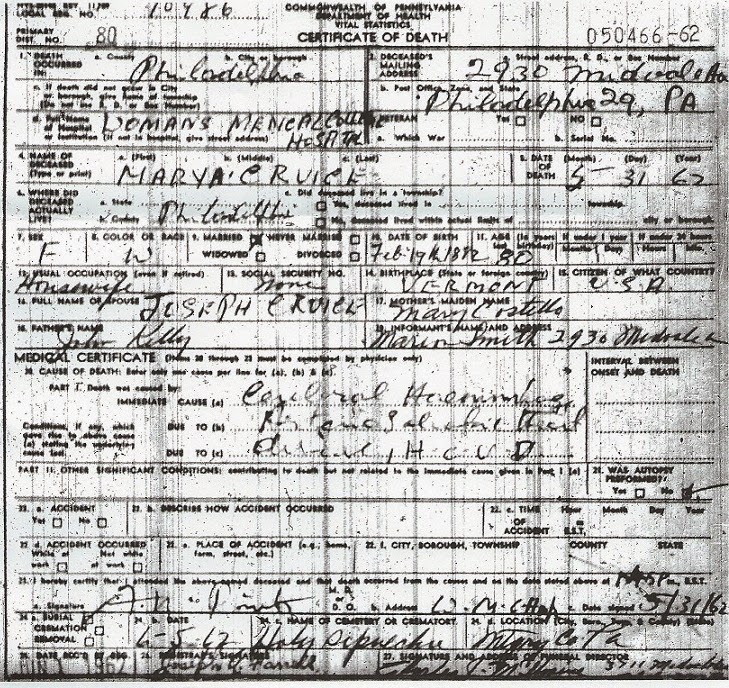 LOCAL REG. NO. 10486
COMMONWEALTH OF PENNSYLVANIA
DEPARTMENT OF HEALTH
VITAL STATISTICS
CERTIFICATE OF DEATH
PRIMARY DIST. NO. 80
050466-62
1. DEATH OCCURRED IN: a. County b. City or borough Philadelphia
c. If death did not occur in City or borough, give name of township (Do not use R. D. or Box Number)
d. Full Name of Hospital or Institution (If not in hospital, give street address) WOMANS MEDICAL COLLEGE HOSPITAL
2. DECEASED'S MAILING ADDRESS a. Street address, R. D., or Box Number 2930 Midvale Ave
b. Post Office, Zone, and State Philadelphia 29, PA
3. VETERAN Yes NO
a. Which War b. Serial No.
4. NAME OF DECEASED (Type or print) a. (First) b. (Middle) c. (Last) MARY A. CRUICE
5. DATE OF DEATH (Month) (Day) (Year) 5 31 62
6. WHERE DID DECEASED ACTUALLY LIVE? a. State b. County Philadelphia
c. Did deceased live in a township?
Yes, deceased lived in township.
No, deceased lived within actual limits of city or borough.
7. SEX F
8. COLOR OR RACE W
9. MARRIED NEVER MARRIED
WIDOWED DIVORCED
10. DATE OF BIRTH Feb. 19th 1882
11. AGE (In years last birthday) 80
If under 1 year Months Days
If under 24 hours Hours Min.
12. USUAL OCCUPATION (even if retired) Housewife
13. SOCIAL SECURITY NO. none
14. BIRTHPLACE (State or foreign country) VERMONT
15. CITIZEN OF WHAT COUNTRY? U.S.A
16. FULL NAME OF SPOUSE JOSEPH CRUICE
17. MOTHER'S MAIDEN NAME Mary Costello
18. FATHER'S NAME John Kelly
19. INFORMANT'S NAME AND ADDRESS Marion Smith 2930 Midvale
MEDICAL CERTIFICATE (Items 20 through 23 must be completed by physician only)
20. CAUSE OF DEATH: Enter only one cause per line for (a), (b) & (c).
INTERVAL BETWEEN ONSET AND DEATH
PART I. Death was caused by:
IMMEDIATE CAUSE (a) Cerebral Haemorrhage
Conditions, if any, which gave rise to above cause (a) stating the underlying cause last.
DUE TO (b) Heart
DUE TO (c) disease, H C V D
PART II. OTHER SIGNIFICANT CONDITIONS: contributing to death but not related to the immediate cause given in Part I (a)
21. WAS AUTOPSY PREFORMED? Yes No
22. a. ACCIDENT Yes No
22. b. DESCRIBE HOW ACCIDENT OCCURRED
22. c. TIME OF ACCIDENT Hour Month Day Year E.S.T.
22. d. ACCIDENT OCCURRED While at work Not while at work
22. e. PLACE OF ACCIDENT (e.g., home, farm, street, etc.)
22. f. CITY, BOROUGH, TOWNSHIP COUNTY STATE
23. I hereby certify that I attended the above named deceased and that death occurred from the causes and on the date stated above at m., E.S.T.
a. Signature M. D. D. O. b. Address c. Date signed 5/31/62
24. a. BURIAL CREMATION REMOVAL
24. b. DATE 6-5-62
24. c. NAME OF CEMETERY OR CREMATORY. Holy Sepulchre
24. d. LOCATION
25. DATE REC'D BY REG. 1962
26. REGISTRAR'S SIGNATURE Joseph
27. SIGNATURE AND ADDRESS OF FUNERAL DIRECTOR Charles